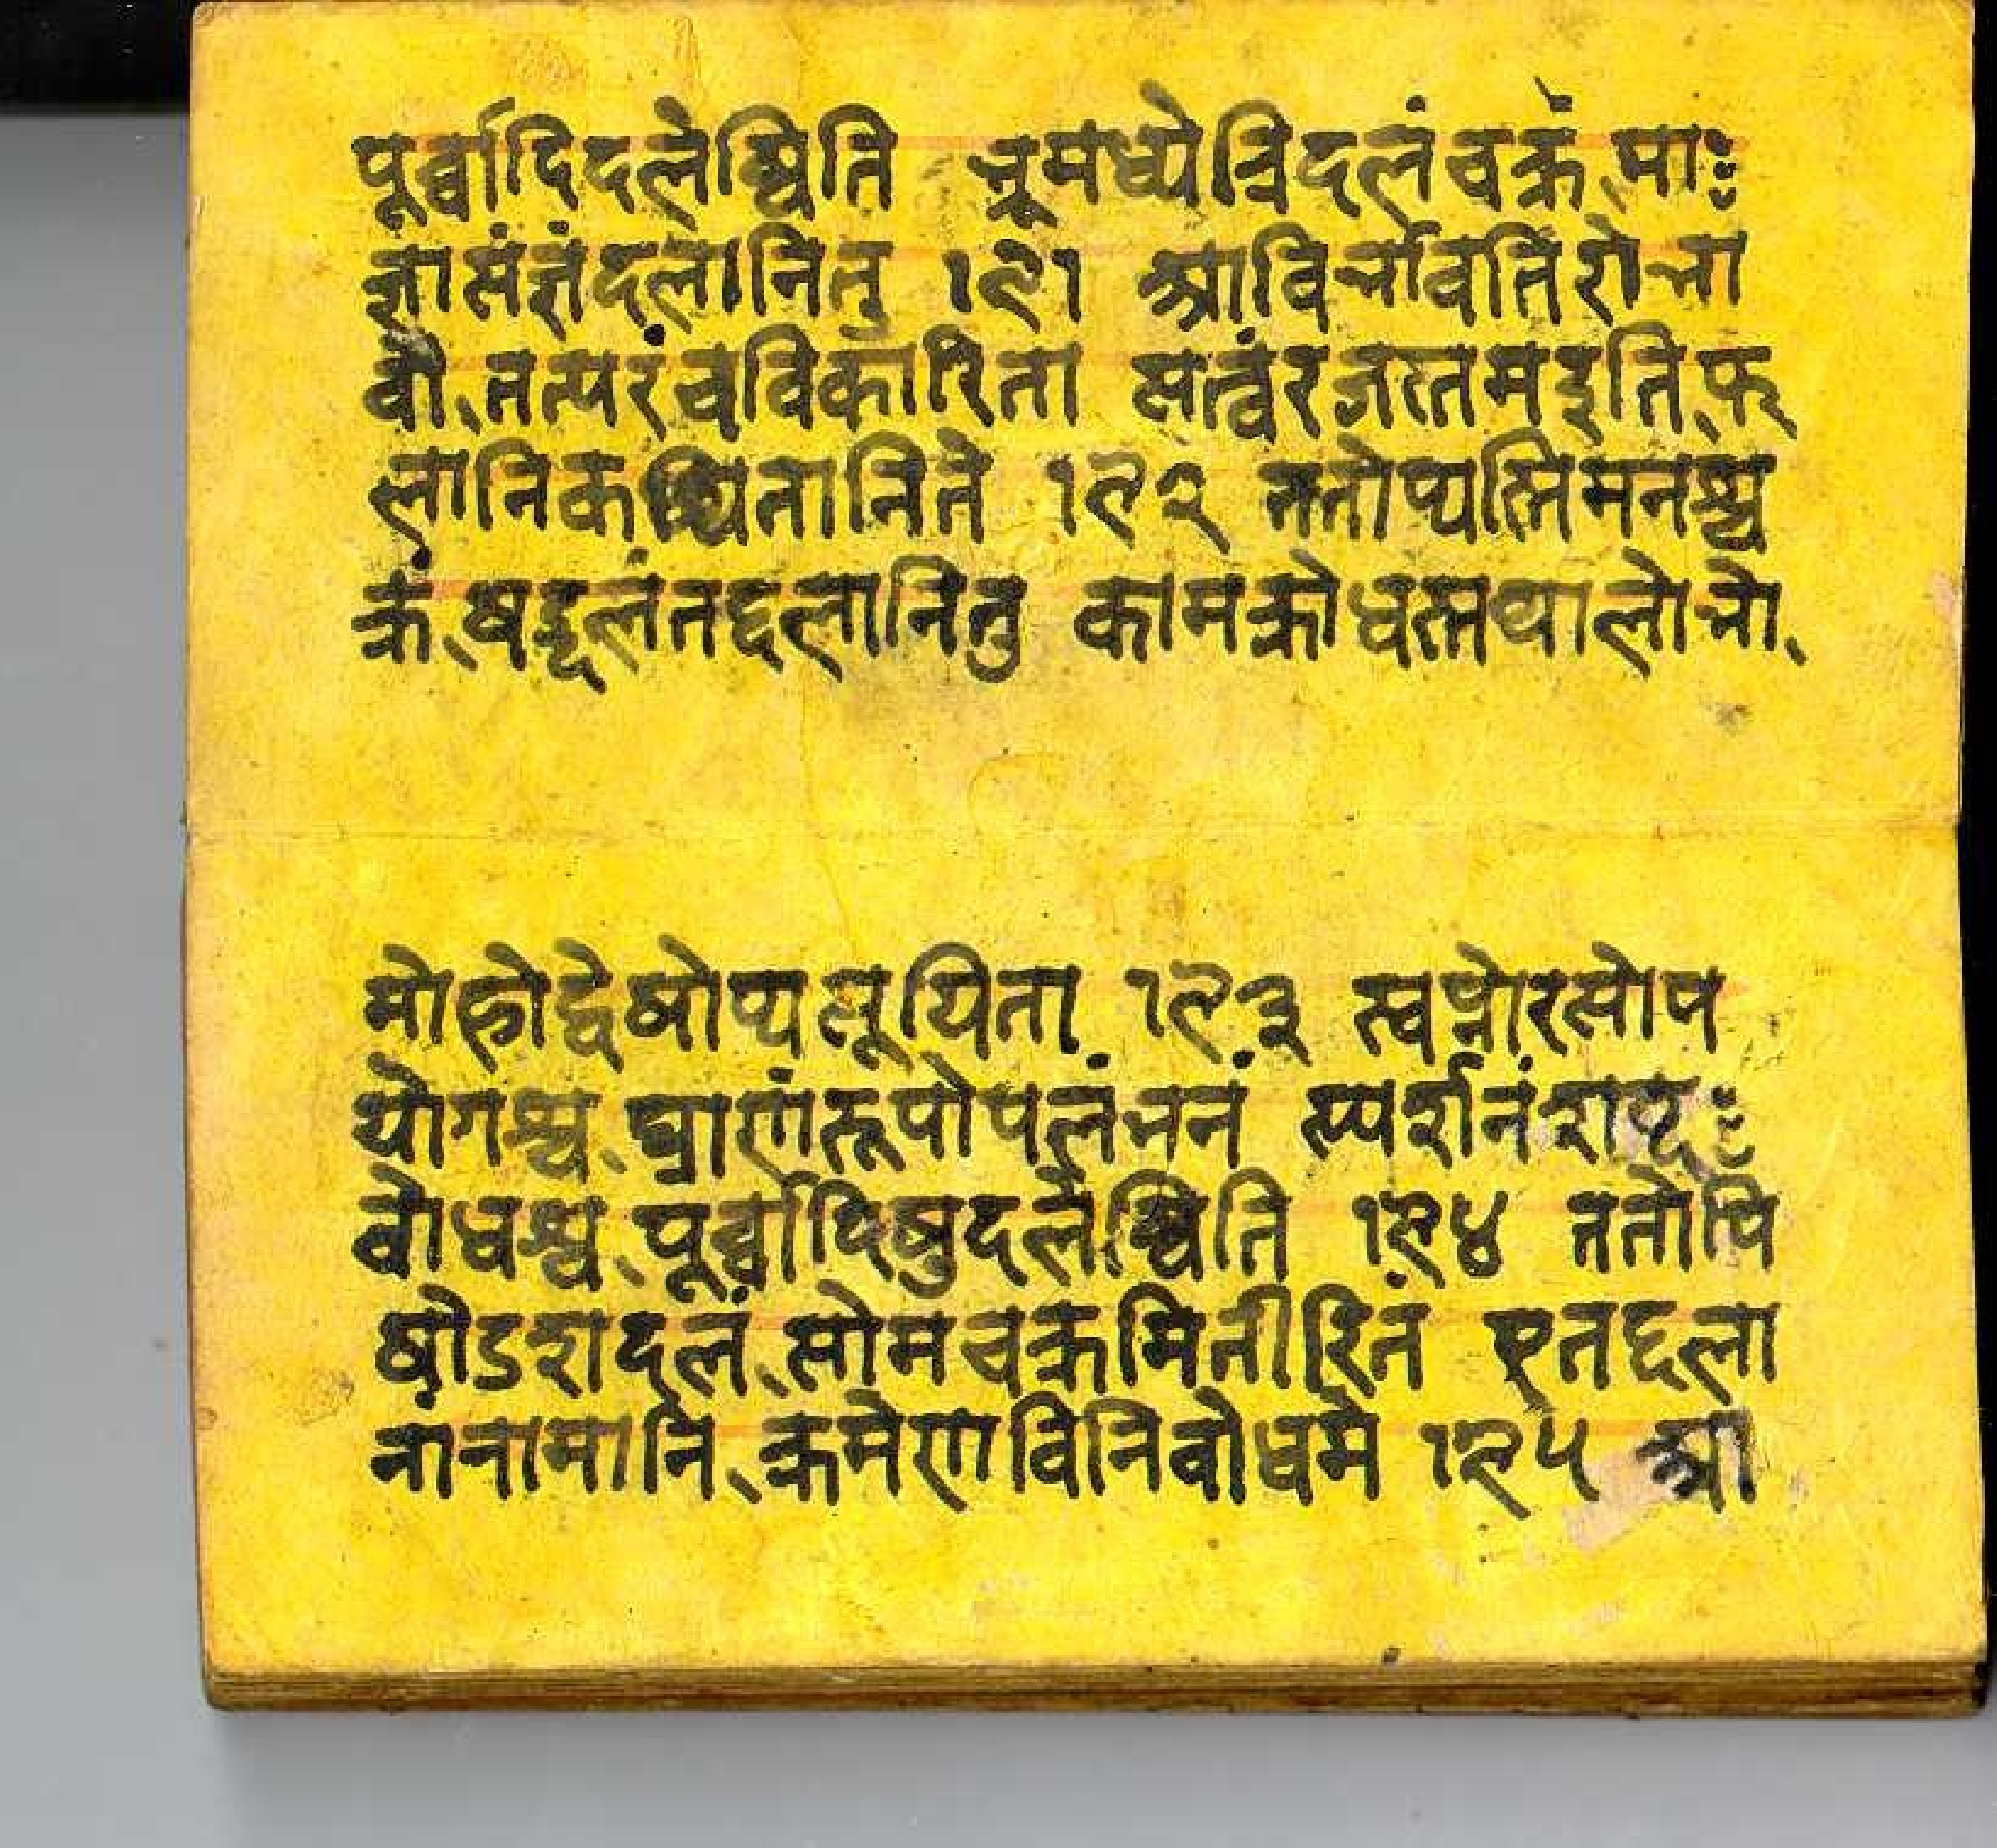 पूर्व्वादिदलेष्विति भ्रूमध्येत्रिदलंचक्रं मा
ज्ञासंज्ञंदलानितु १२१ आविर्भावतिरोभा
वौ तत्परंचविकारिता सत्वंरजस्तमइति फ
लानिकथितानिते १२२ ततोप्यस्तिमनश्च
क्रं षड्दलंतद्दलानितु कामक्रोधस्तथालोभो
मोहोद्वेषोप्यसूयिता १२३ स्वप्नोरसोप
योगश्च घ्राणंरूपोपलंभनं स्पर्शनंशब्द
वोधश्च पूर्व्वादिषुदलेष्विति १२४ ततोपि
षोडशदलं सोमचक्रमितीरितं एतद्दला
नांनामानि क्रमेणविनिवोधमे १२५ आ